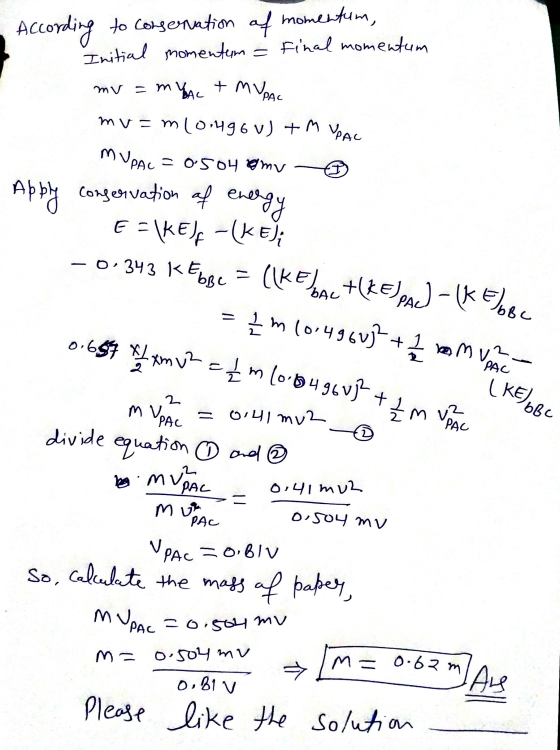 According to conservation of momentum,
Initial momentum = Final momentum
mv = mv_bAC + Mv_PAC
mv = m(0.496v) + M v_PAC
Mv_PAC = 0.504 mv —①
Apply conservation of energy
E = (KE)_f - (KE)_i
- 0.343 KE_bBC = ((KE)_bAC + (KE)_PAC) - (KE)_bBC
= 1/2 m (0.496v)² + 1/2 M v²_PAC - (KE)_bBC
0.657 × 1/2 × mv² = 1/2 m (0.496v)² + 1/2 M v²_PAC
M v²_PAC = 0.41 mv² —②
divide equation ① and ②
Mv²_PAC / M v_PAC = 0.41 mv² / 0.504 mv
V_PAC = 0.81V
So, calculate the mass of paper,
M v_PAC = 0.504 mv
M = 0.504 mv / 0.81 V ⇒ M = 0.62 m Ans
Please like the solution